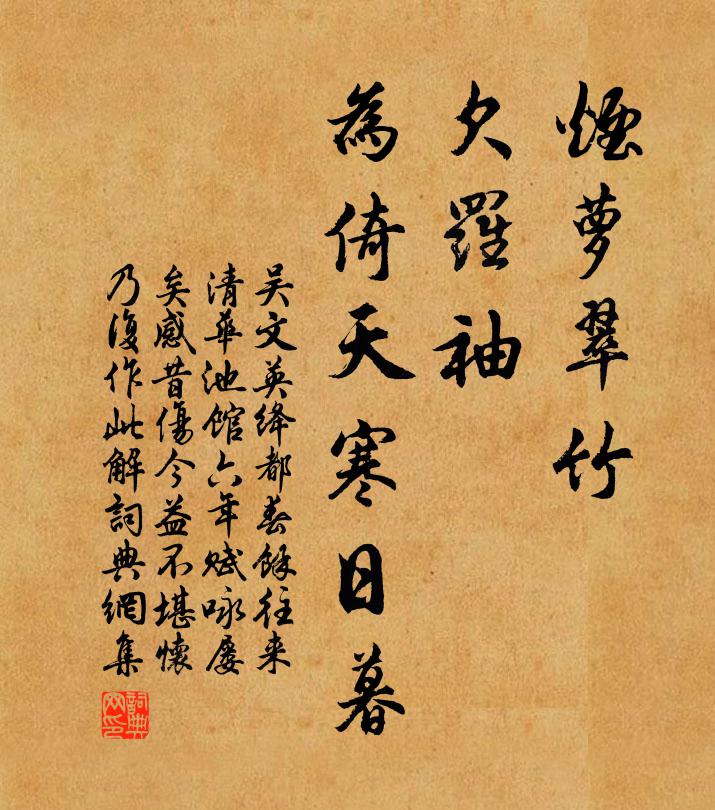 煙蘿翠竹
欠羅袖
為倚天寒日暮
吴文英绛都春餘往来
清華池館六年賦咏屡
矣感昔傷今益不堪懷
乃復作此解詞典網集
詞典
网印